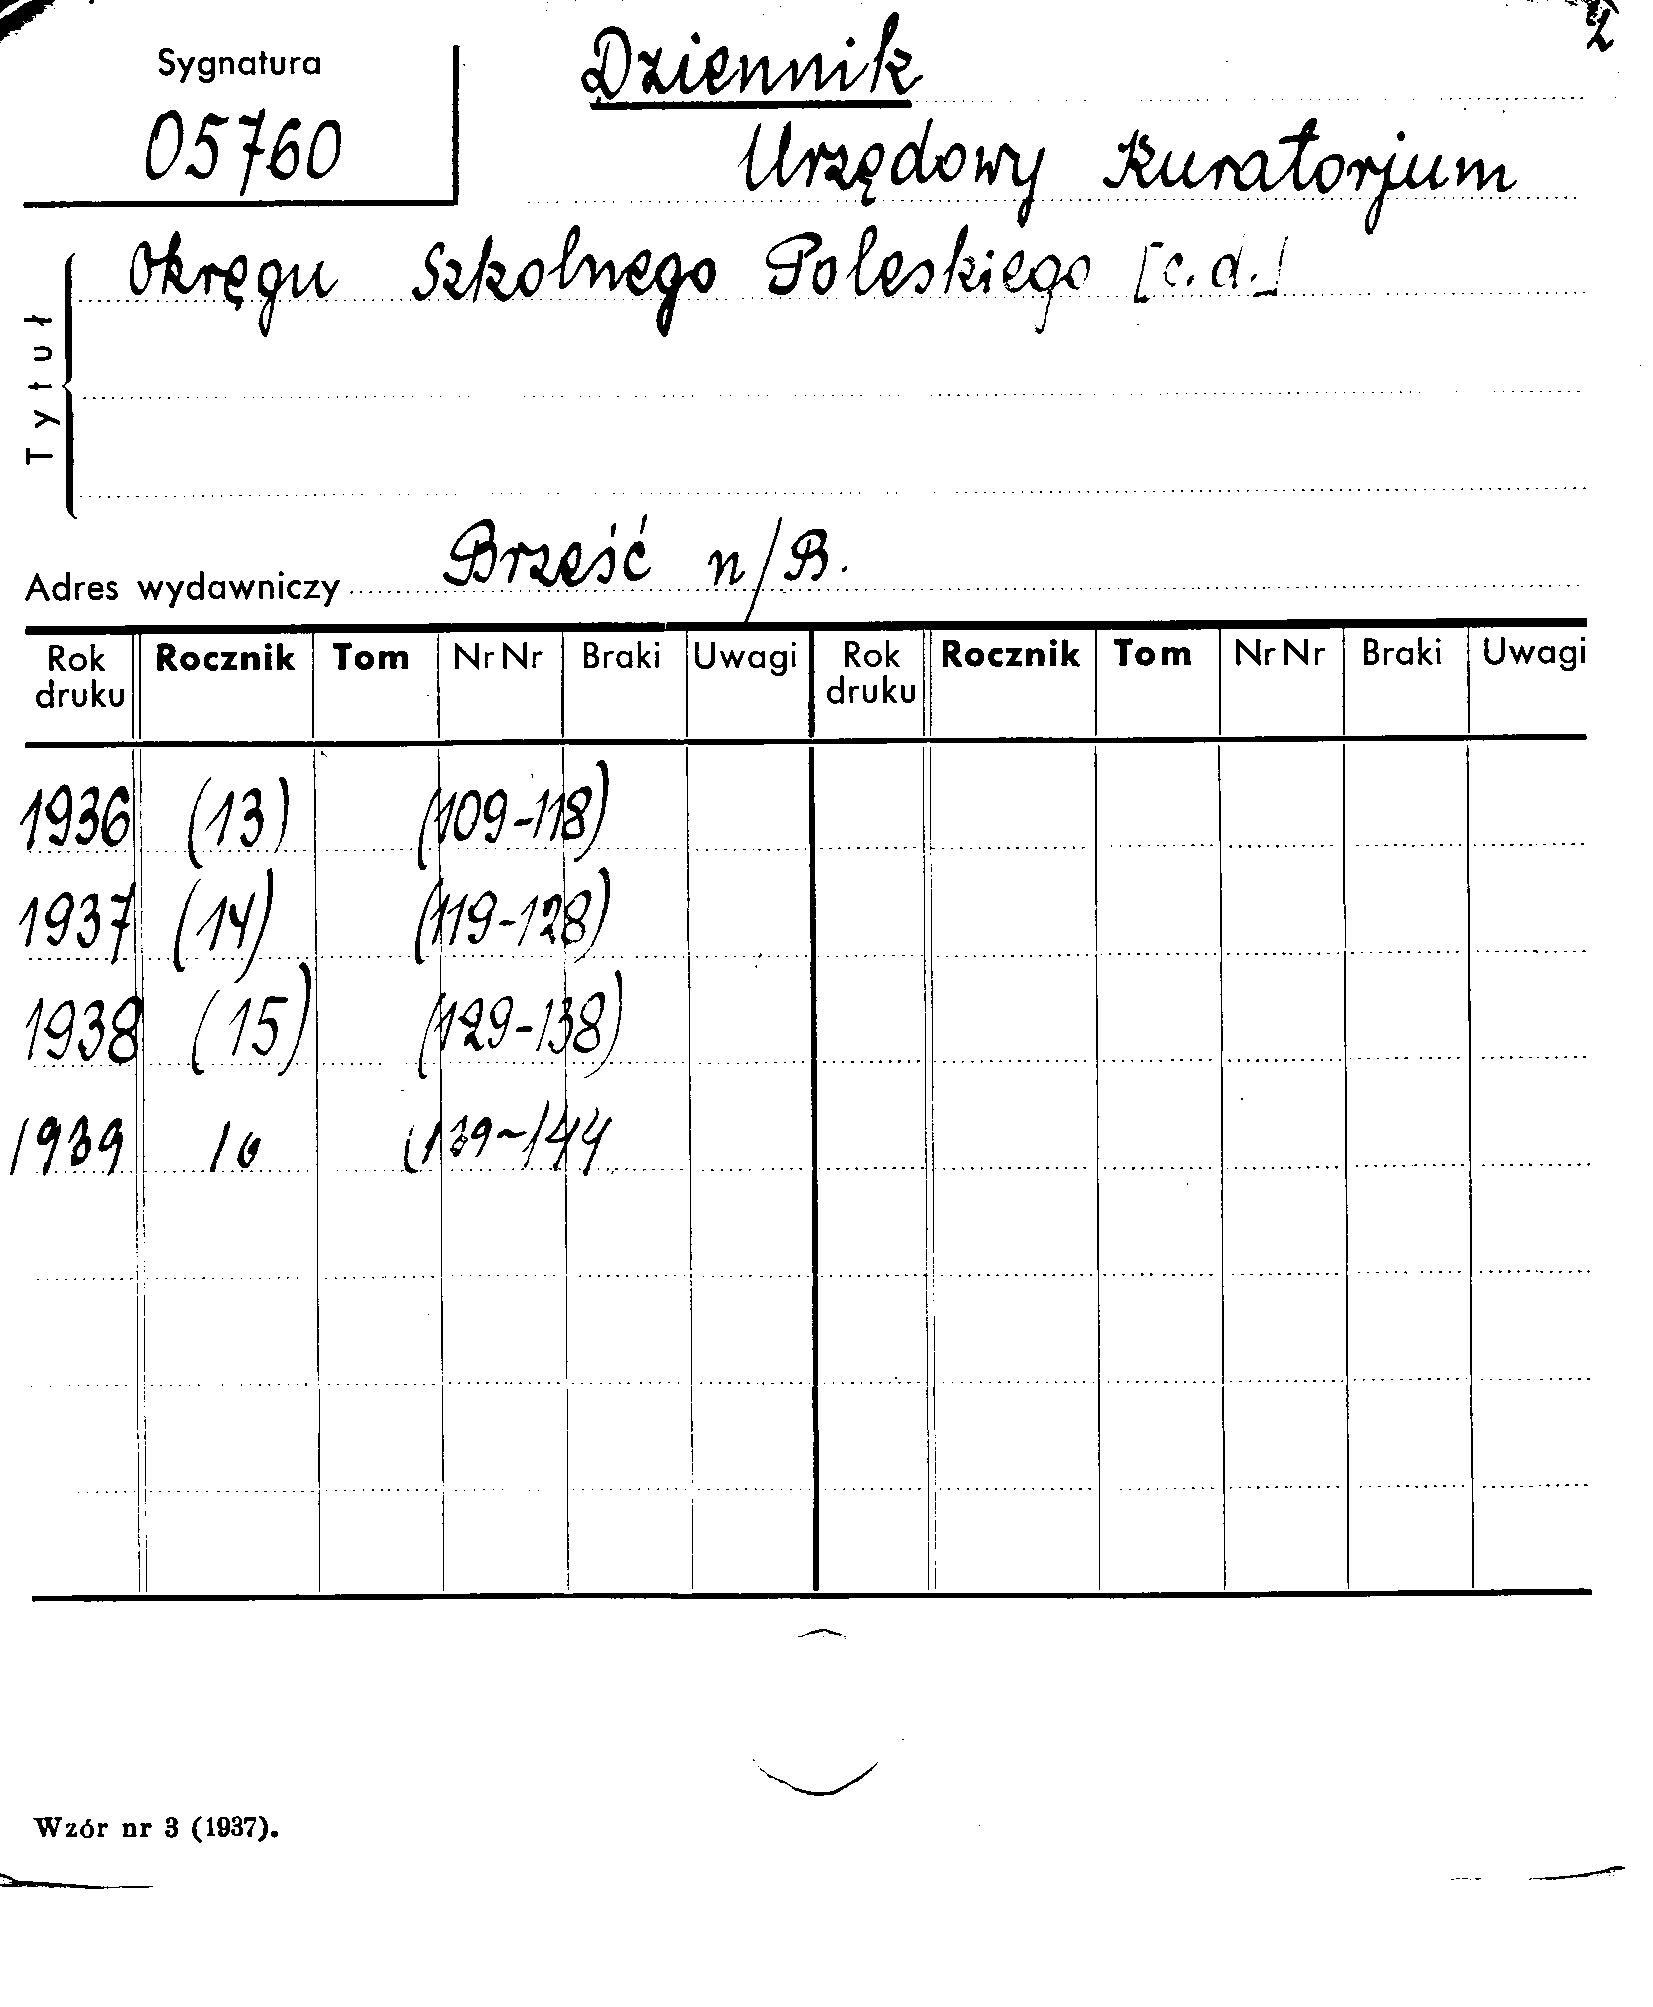 2
Sygnatura
05760
Dziennik
Urzędowy Kuratorjum
Okręgu Szkolnego Poleskiego [c.d.]
Tytuł
Adres wydawniczy Brześć n/B.
Rok druku Rocznik Tom Nr Nr Braki Uwagi Rok druku Rocznik Tom Nr Nr Braki Uwagi
1936 (13) (109-118)
1937 (14) (119-128)
1938 (15) (129-138)
1939 16 (139-144
Wzór nr 3 (1937).